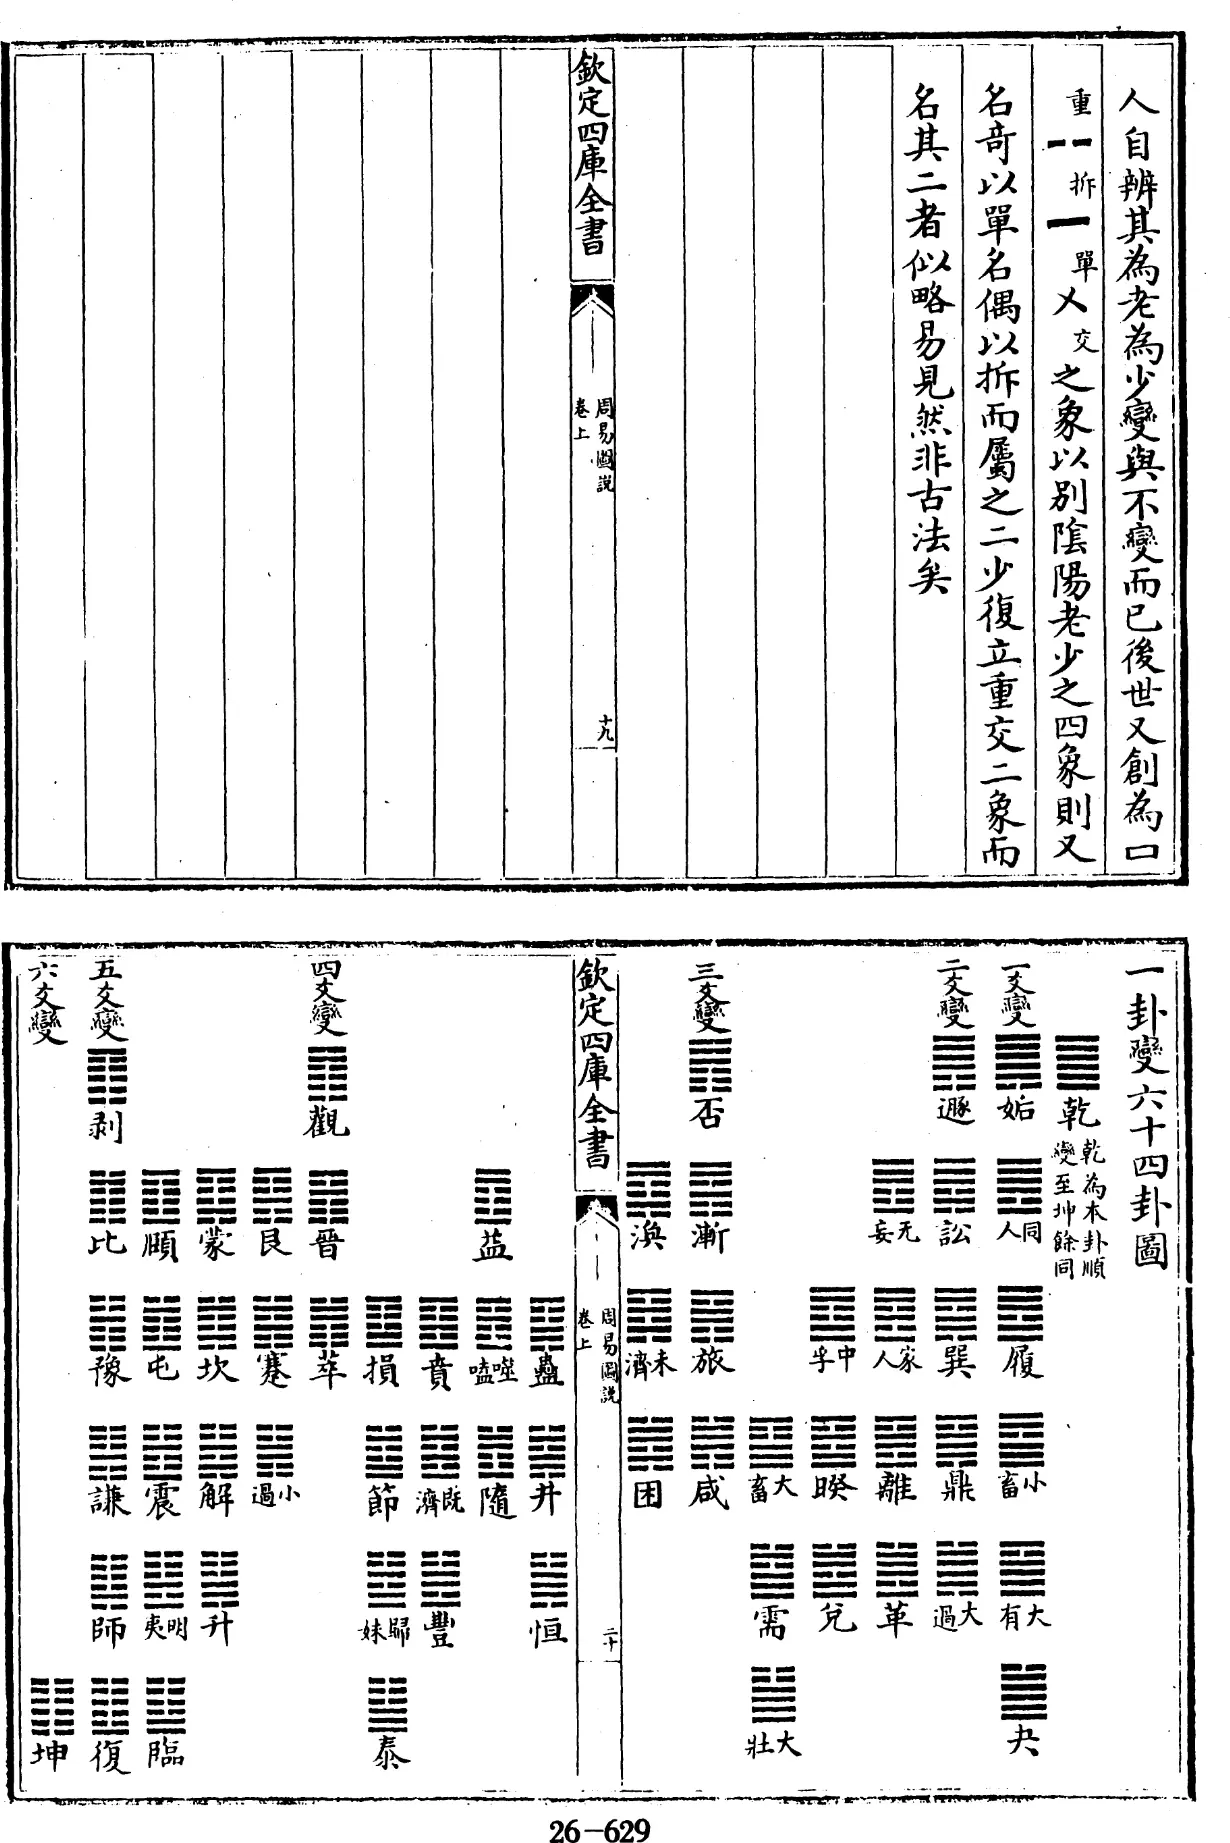 人自辨其為老為少變與不變而已後世又創為口
重⚋拆⚊單㐅交之象以別陰陽老少之四象則又
名竒以單名偶以拆而屬之二少復立重交二象而
名其二者似略易見然非古法矣
欽定四庫全書
周易圖説
卷上
十九
一卦變六十四卦圖
乾 乾為本卦順
變至坤餘同
一爻變 姤 同人 履 小畜 大有 夬
二爻變 遯 訟 巽 鼎 大過
无妄 家人 離 革
中孚 睽 兌
大畜 需 大壯
三爻變 否 漸 旅 咸
渙 未濟 困
欽定四庫全書
周易圖説
卷上
二十
蠱 井 恒
益 噬嗑 隨
賁 既濟 豐
損 節 歸妹 泰
四爻變 觀 晉 萃
艮 蹇 小過
蒙 坎 解 升
頤 屯 震 明夷 臨
五爻變 剥 比 豫 謙 師 復
六爻變 坤
26-629